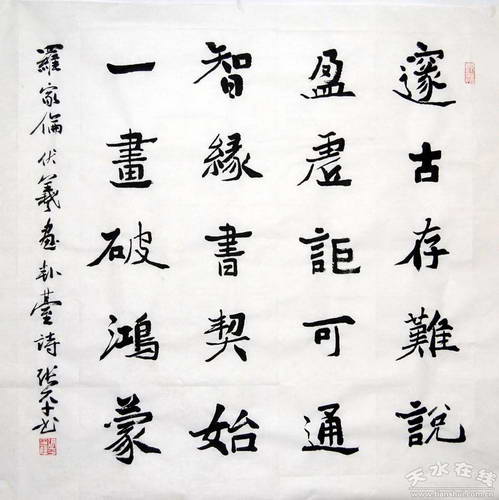 邃古存難說
盈虛詎可通
智緣書契始
一畫破鴻蒙
羅家倫伏羲畫卦臺詩 張天書
天水在线
www.tianshui.com.cn